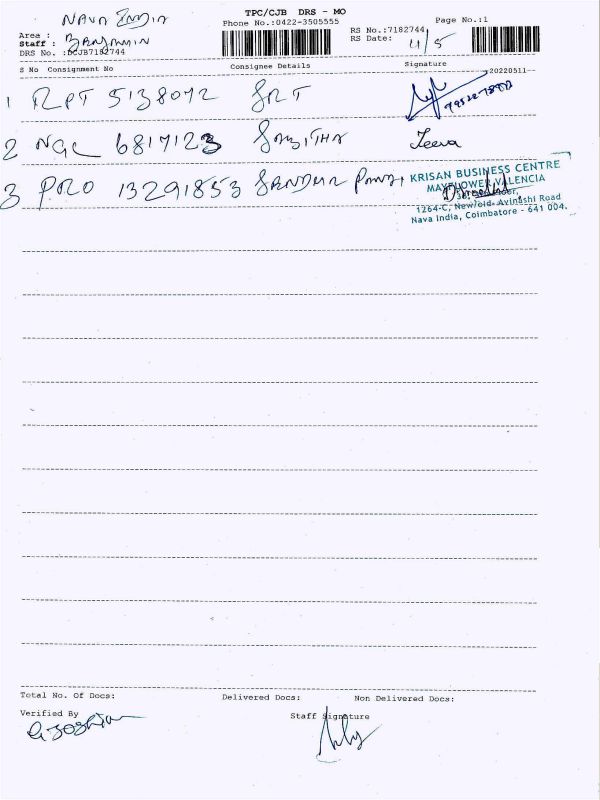 NAVA INDIA
TPC/CJB DRS - MO
Phone No.:0422-3505555
Page No.:1
Area :
Staff : BANJAMIN
RS No.:7182744
RS Date: 4/5
DRS No. :DCJB7182744
S No Consignment No Consignee Details Signature --20220511--
1 RPT 5138072 SRT
2 NGC 6817123 SABITHA Jeeva
3 PRO 13291853
KRISAN BUSINESS CENTRE
MAYFLOWER VALENCIA
1264-C, Avinashi Road
Nava India, Coimbatore - 641 004.
Total No. Of Docs: Delivered Docs: Non Delivered Docs:
Verified By Staff Signature